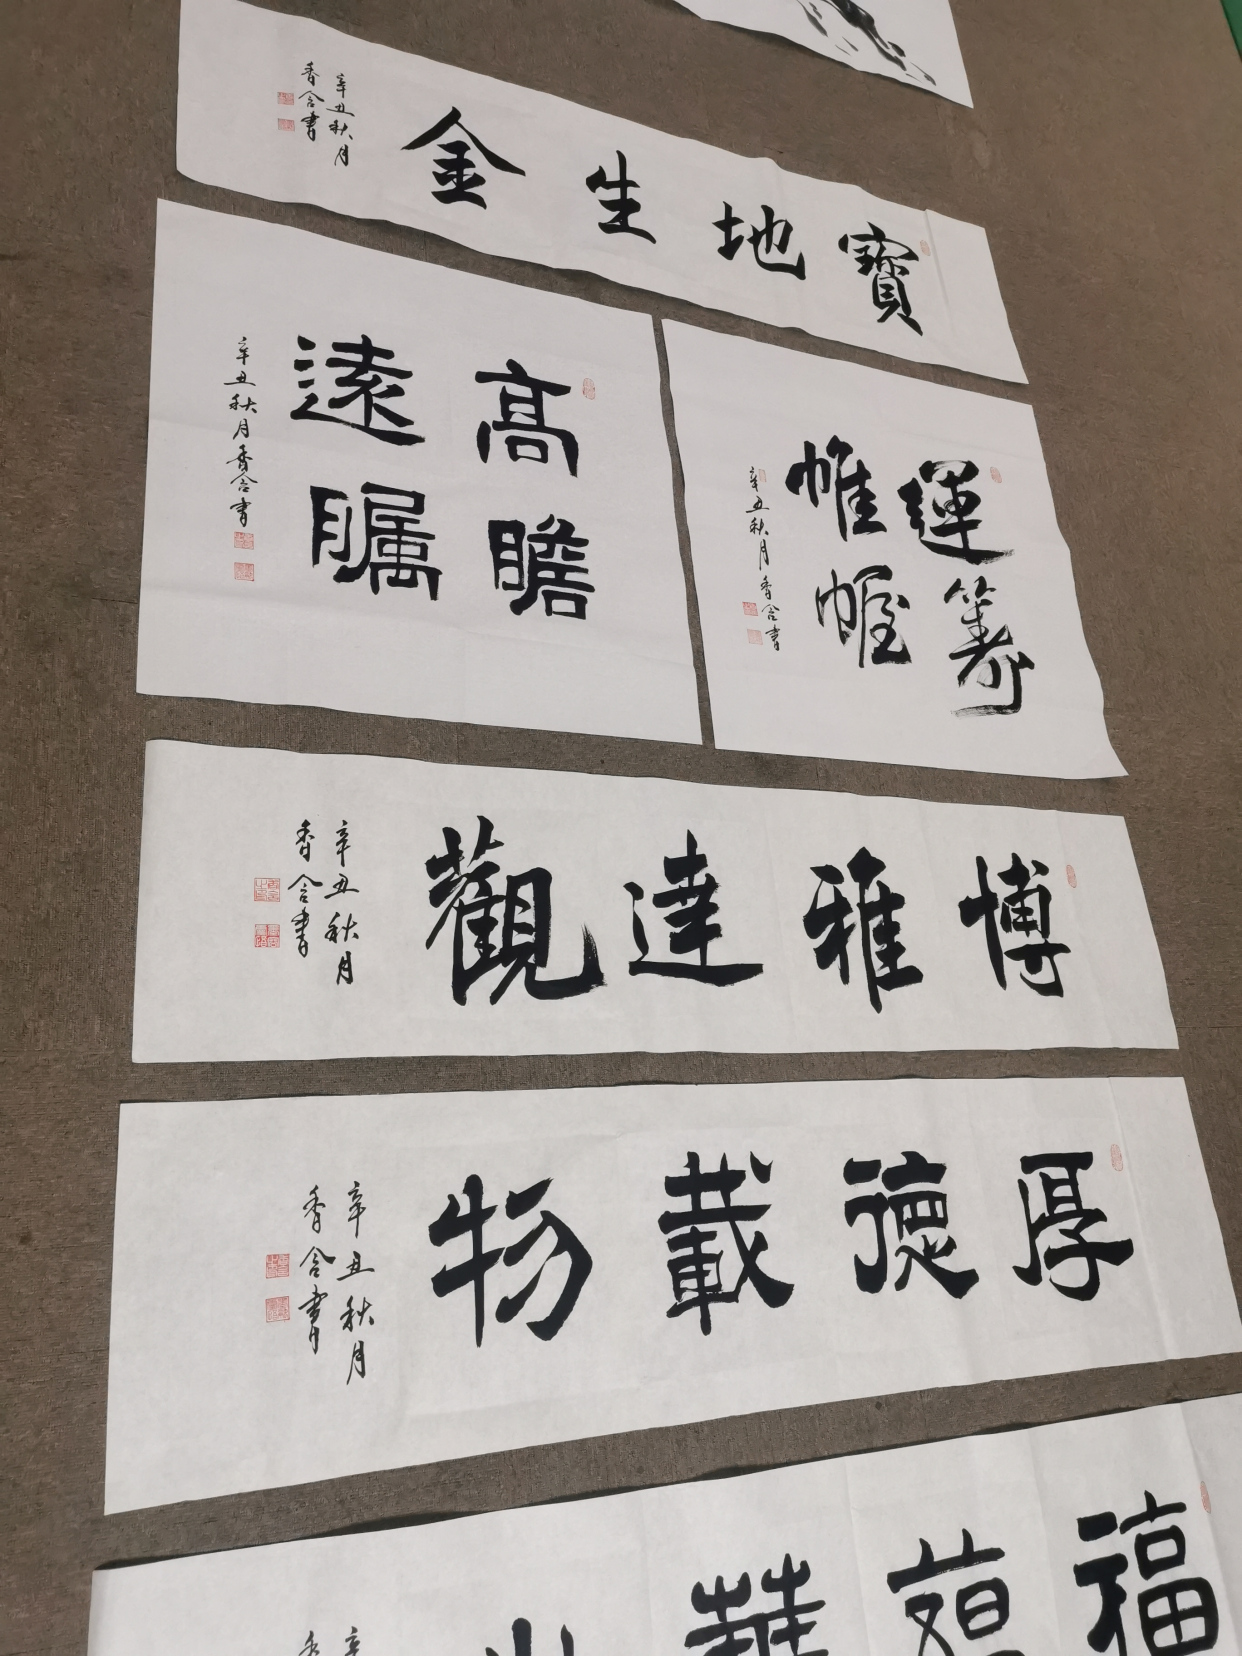 寶地生金
辛丑秋月
香含書
高瞻
遠矚
辛丑秋月香含書
運籌
帷幄
辛丑秋月香含書
博雅達觀
辛丑秋月
香含書
厚德載物
辛丑秋月
香含書
福